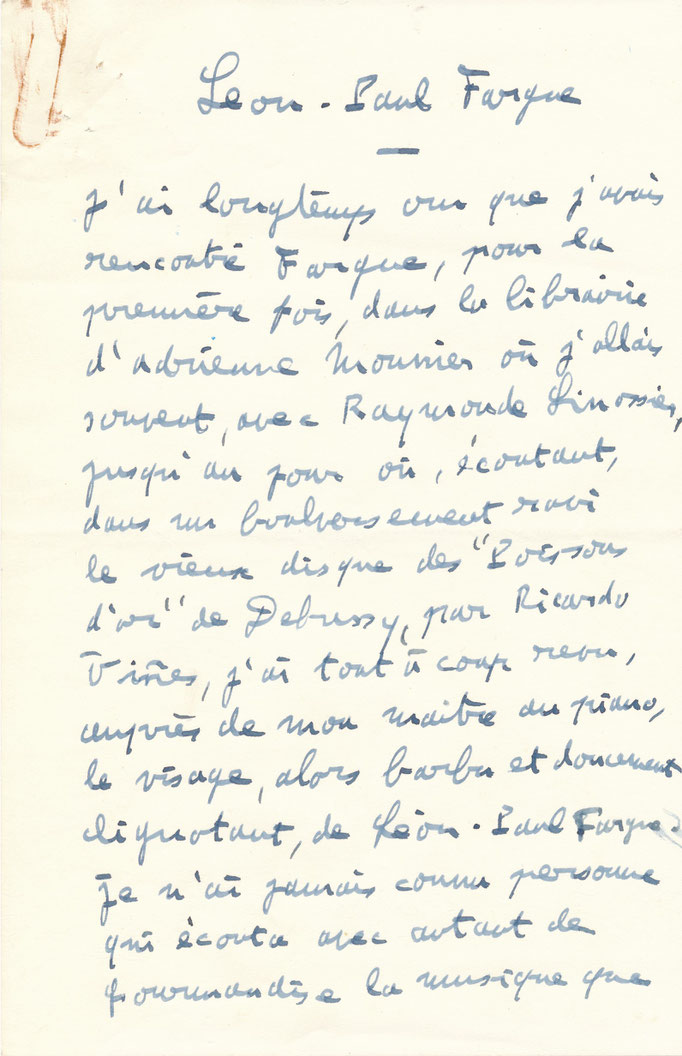 Léon-Paul Fargue
J'ai longtemps cru que j'avais
rencontré Fargue, pour la
première fois, dans la librairie
d'Adrienne Monnier où j'allais
souvent, avec Raymonde Linossier,
jusqu'au jour où, écoutant,
dans un bouleversement ravi
le vieux disque des "Poissons
d'or" de Debussy, par Ricardo
Viñes, j'ai tout à coup revu,
auprès de mon maître au piano,
le visage, alors barbu et doucement
clignotant, de Léon-Paul Fargue.
Je n'ai jamais connu personne
qui écouta avec autant de
gourmandise la musique que